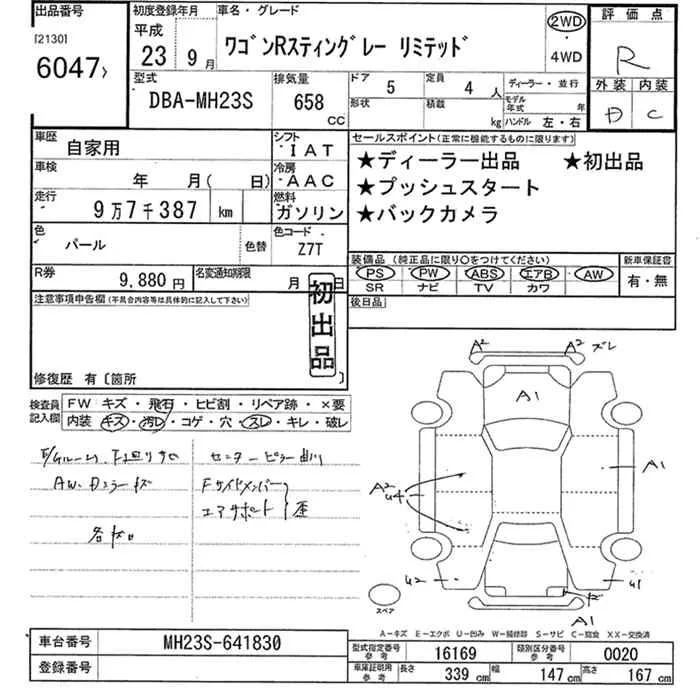 出品番号
[2130]
6047
初度登録年月
平成
23年 9月
車名・グレード
ワゴンRスティングレー リミテッド
2WD
・
4WD
評価点
R
外装 内装
D C
型式
DBA-MH23S
排気量
658 CC
ドア 5
定員 4人
ディーラー・並行
形状
積載 kg
モデル年式 年
ハンドル 左・右
車歴 自家用
シフト IAT
車検 年 月( 日)
冷房 AAC
走行 9万7千387 km
燃料 ガソリン
色 パール 色替
色コード Z7T
R券 9,880円
名変通知期限 月 日
セールスポイント(正常に機能するものに限ります)
★ディーラー出品 ★初出品
★プッシュスタート
★バックカメラ
装備品(純正品に限り○をつけてください)
PS PW ABS エアB AW
SR ナビ TV カワ
新車保証書
有・無
後日品
注意事項申告欄(不具合内容等は具体的に記入して下さい)
初出品
修復歴 有〔箇所
検査員記入欄
FW キズ・飛石・ヒビ割・リペア跡・×要
内装 キズ・汚レ・コゲ・穴・スレ・キレ・破レ
センターピラー曲リ
AW、Dミラーキズ
Fサイドメンバー
エアサポート 歪
A2 A2 ズレ
A1
A1
A2
U4
U2
U1
A1
スペア
A-キズ E-エクボ U-凹み W-補修跡 S-サビ C-腐食 XX-交換済
車台番号 MH23S-641830
登録番号
型式指定番号 参考 16169
類別区分番号 参考 0020
車庫証明用 参考 長さ 339 cm 幅 147 cm 高さ 167 cm